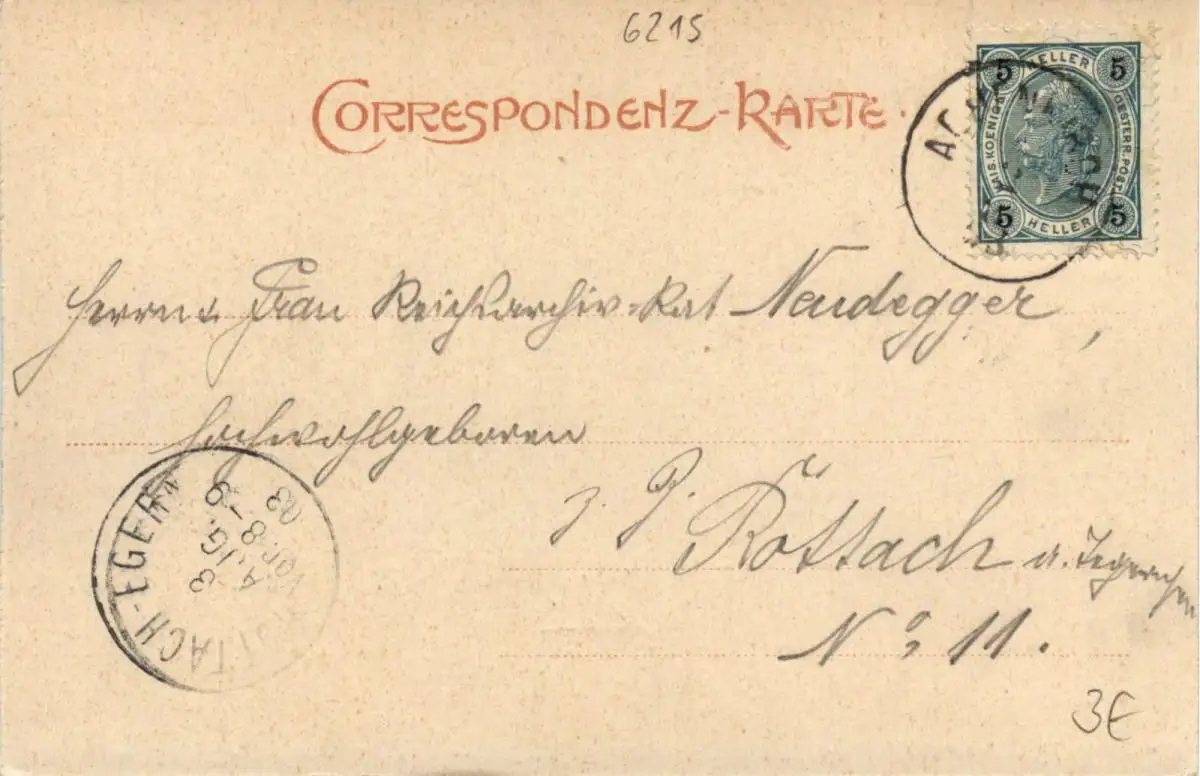 6215
CORRESPONDENZ-KARTE.
5 HELLER 5
KAIS. KOENIGL. OESTERR. POST.
5 HELLER 5
Herrn u. Frau Reichsarchiv-Rat Neudegger,
Hochwohlgeboren
z. Z. Rottach a. Tegernsee
No 11.
ROTTACH-EGERN
3 AUG. 9
VOR. 8-9
03
3€